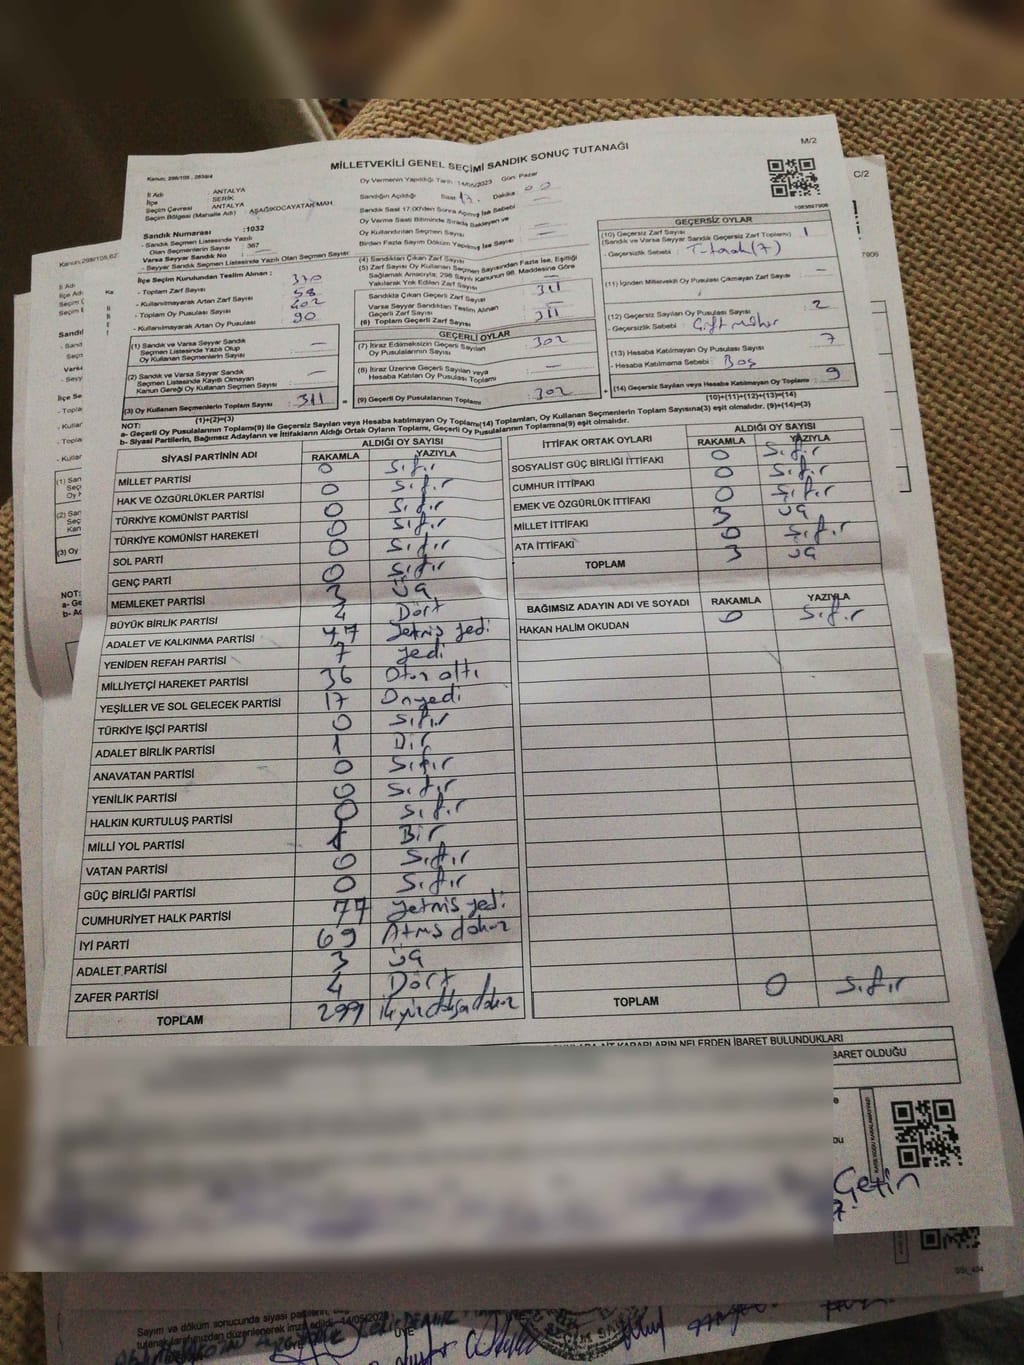 MİLLETVEKİLİ GENEL SEÇİMİ SANDIK SONUÇ TUTANAĞI
M/2
C/2
Oy Vermenin Yapıldığı Tarih: 14/05/2023 Gün: Pazar
İl Adı : ANTALYA
İlçe : SERİK
Seçim Çevresi : ANTALYA
Seçim Bölgesi (Mahalle Adı) : AŞAĞIKOCAYATAK MAH.
Sandığın Açıldığı Saat 17. Dakika 00
Sandık Saat 17:00'den Sonra Açılmış İse Sebebi
Oy Verme Saati Bitiminde Sırada Bekleyen ve
Oy Kullandırılan Seçmen Sayısı
Birden Fazla Sayım Döküm Yapılmış İse Sayısı
Sandık Numarası :1032
- Sandık Seçmen Listesinde Yazılı
Olan Seçmenlerin Sayısı : 367
Varsa Seyyar Sandık No
- Seyyar Sandık Seçmen Listesinde Yazılı Olan Seçmen Sayısı
İlçe Seçim Kurulundan Teslim Alınan :
- Toplam Zarf Sayısı : 370
- Kullanılmayarak Artan Zarf Sayısı : 58
- Toplam Oy Pusulası Sayısı : 402
- Kullanılmayarak Artan Oy Pusulası : 90
(1) Sandık ve Varsa Seyyar Sandık
Seçmen Listesinde Yazılı Olup
Oy Kullanan Seçmenlerin Sayısı
(2) Sandık ve Varsa Seyyar Sandık
Seçmen Listesinde Kayıtlı Olmayan
Kanun Gereği Oy Kullanan Seçmen Sayısı
(3) Oy Kullanan Seçmenlerin Toplam Sayısı : 311
(1)+(2)=(3)
(4) Sandıktan Çıkan Zarf Sayısı
(5) Zarf Sayısı Oy Kullanan Seçmen Sayısından Fazla İse, Eşitliği
Sağlamak Amacıyla, 298 Sayılı Kanunun 98. Maddesine Göre
Yakılarak Yok Edilen Zarf Sayısı
Sandıkta Çıkan Geçerli Zarf Sayısı : 311
Varsa Seyyar Sandıktan Teslim Alınan
Geçerli Zarf Sayısı
(6) Toplam Geçerli Zarf Sayısı : 311
GEÇERLİ OYLAR
(7) İtiraz Edilmeksizin Geçerli Sayılan
Oy Pusulalarının Sayısı : 302
(8) İtiraz Üzerine Geçerli Sayılan veya
Hesaba Katılan Oy Pusulası Toplamı
(9) Geçerli Oy Pusulalarının Toplamı : 302
GEÇERSİZ OYLAR
(10) Geçersiz Zarf Sayısı
(Sandık ve Varsa Seyyar Sandık Geçersiz Zarf Toplamı) : 1
- Geçersizlik Sebebi :
(11) İçinden Milletvekili Oy Pusulası Çıkmayan Zarf Sayısı
(12) Geçersiz Sayılan Oy Pusulası Sayısı : 2
- Geçersizlik Sebebi : Çift mühür
(13) Hesaba Katılmayan Oy Pusulası Sayısı : 7
- Hesaba Katılmama Sebebi : Boş
(14) Geçersiz Sayılan veya Hesaba Katılmayan Oy Pusulası Toplamı : 9
(10)+(11)+(12)+(13)=(14)
NOT:
a- Geçerli Oy Pusulasının Toplamı(9) ile Geçersiz Sayılan veya Hesaba Katılmayan Oy Pusulası Toplamı(14) Toplamları, Oy Kullanan Seçmenlerin Toplam Sayısına(3) eşit olmalıdır. (9)+(14)=(3)
b- Siyasi Partilerin, Bağımsız Adayların ve İttifakların Aldığı Ortak Oyların Toplamı, Geçerli Oy Pusulalarının Toplamına(9) eşit olmalıdır.
SİYASİ PARTİNİN ADI ALDIĞI OY SAYISI
RAKAMLA YAZIYLA
MİLLET PARTİSİ 0 Sıfır
HAK VE ÖZGÜRLÜKLER PARTİSİ 0 Sıfır
TÜRKİYE KOMÜNİST PARTİSİ 0 Sıfır
TÜRKİYE KOMÜNİST HAREKETİ 0 Sıfır
SOL PARTİ 0 Sıfır
GENÇ PARTİ 0 Sıfır
MEMLEKET PARTİSİ 3 Üç
BÜYÜK BİRLİK PARTİSİ 4 Dört
ADALET VE KALKINMA PARTİSİ 77 Yetmiş yedi
YENİDEN REFAH PARTİSİ 7 yedi
MİLLİYETÇİ HAREKET PARTİSİ 36 Otuz altı
YEŞİLLER VE SOL GELECEK PARTİSİ 17 Onyedi
TÜRKİYE İŞÇİ PARTİSİ 0 Sıfır
ADALET BİRLİK PARTİSİ 1 Bir
ANAVATAN PARTİSİ 0 Sıfır
YENİLİK PARTİSİ 0 Sıfır
HALKIN KURTULUŞ PARTİSİ 0 Sıfır
MİLLİ YOL PARTİSİ 1 Bir
VATAN PARTİSİ 0 Sıfır
GÜÇ BİRLİĞİ PARTİSİ 0 Sıfır
CUMHURİYET HALK PARTİSİ 77 yetmiş yedi
İYİ PARTİ 69 Atmış dokuz
ADALET PARTİSİ 3 üç
ZAFER PARTİSİ 4 Dört
TOPLAM 299
İTTİFAK ORTAK OYLARI ALDIĞI OY SAYISI
RAKAMLA YAZIYLA
SOSYALİST GÜÇ BİRLİĞİ İTTİFAKI 0 Sıfır
CUMHUR İTTİFAKI 0 Sıfır
EMEK VE ÖZGÜRLÜK İTTİFAKI 0 Sıfır
MİLLET İTTİFAKI 3 üç
ATA İTTİFAKI 0 Sıfır
TOPLAM 3 üç
BAĞIMSIZ ADAYIN ADI VE SOYADI RAKAMLA YAZIYLA
HAKAN HALİM OKUDAN 0 Sıfır
TOPLAM 0 Sıfır
KARARLARIN NELERDEN İBARET BULUNDUKLARI
BARET OLDUĞU
Çetin
Sayım ve döküm sonucunda siyasi partilerin,
tutanaklarımızdan düzenlenerek imza edildi. 14/05/2023
ÜYE